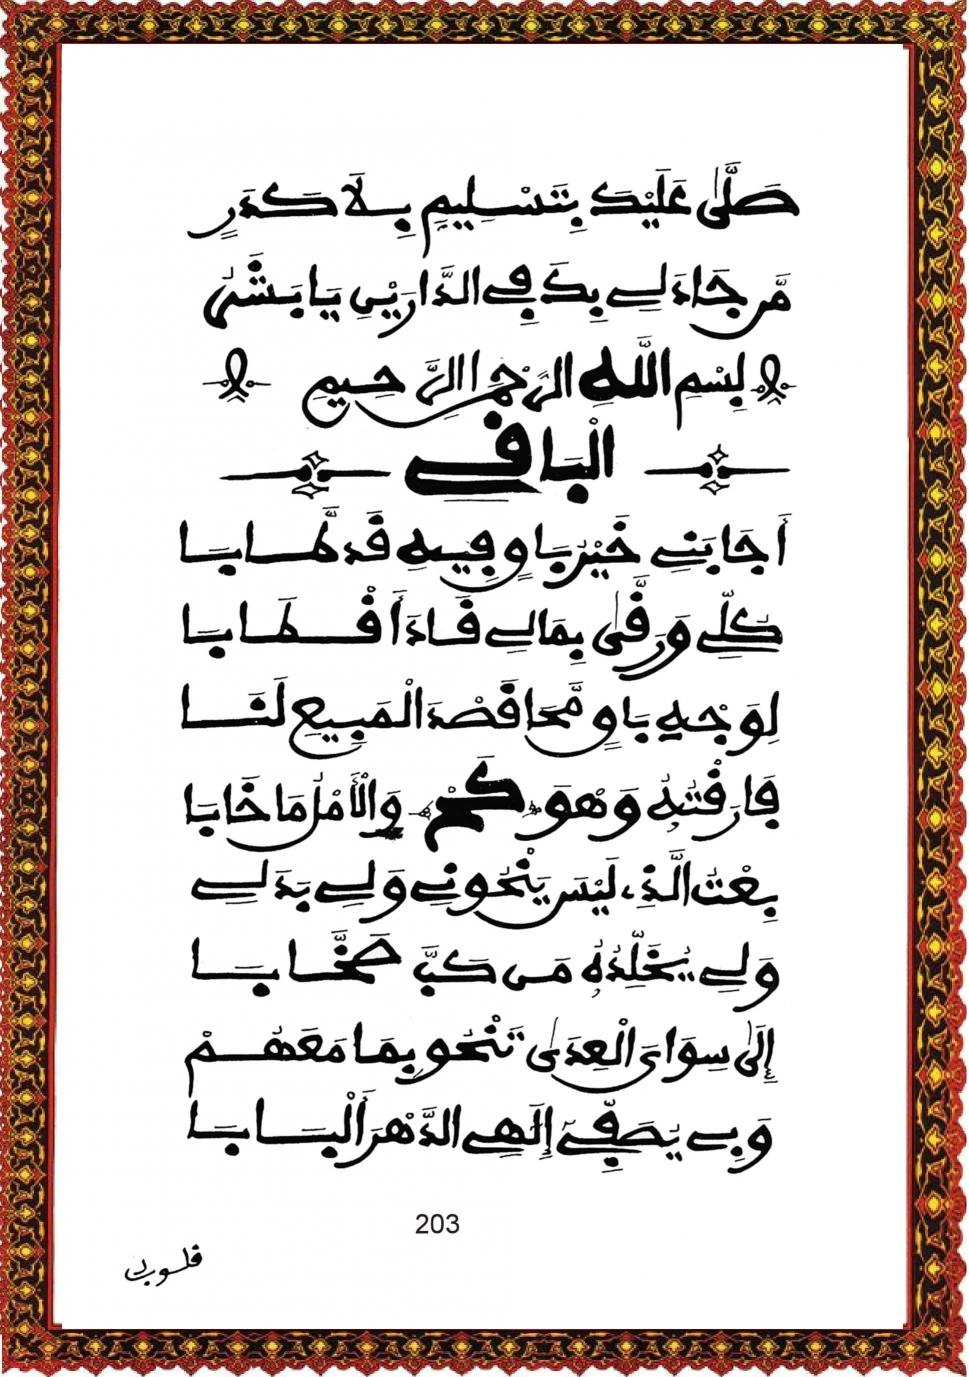 صَلَّى عَلَيْكَ بِتَسْلِيمٍ بِلَا كَدَرٍ
مَن جَادَ لِي بِكَ فِي الدَّارَيْنِ يَا
بِسْمِ اللَّهِ الرَّحْمَنِ الرَّحِيمِ
الْبَاقِي
أَجَابَنِي خَيْرُ بَاقٍ فِيهِ قَدْ طَابَا
كُلِّي وَرَقَّى بِمَا لِي قَادَ أَقْطَابَا
لِوَجْهِ بَاقٍ مَحَا قَصْدَ الْمَبِيعِ لَنَا
فَارَقْتُهُ وَهْوَ كَمْ مَا خَابَا
بِعْتُ الَّذِي لَيْسَ يَنْحُونِي وَلِي بَدَلِي
وَلِي يُخَلِّدُهُ مَن كَبَّ صَخَّابَا
إِلَى سِوَايَ الْعِدَى تَنْحُو بِمَا مَعَهُمْ
وَبِي يُصَفِّي إِلَهِي الدَّهْرَ أَلْبَابَا
203